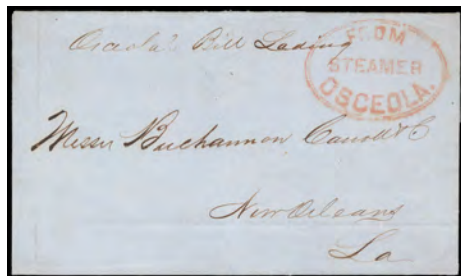 Osceola's Bill Lading
FROM
STEAMER
OSCEOLA.
Messrs Buchannon Carroll & C
New Orleans
La